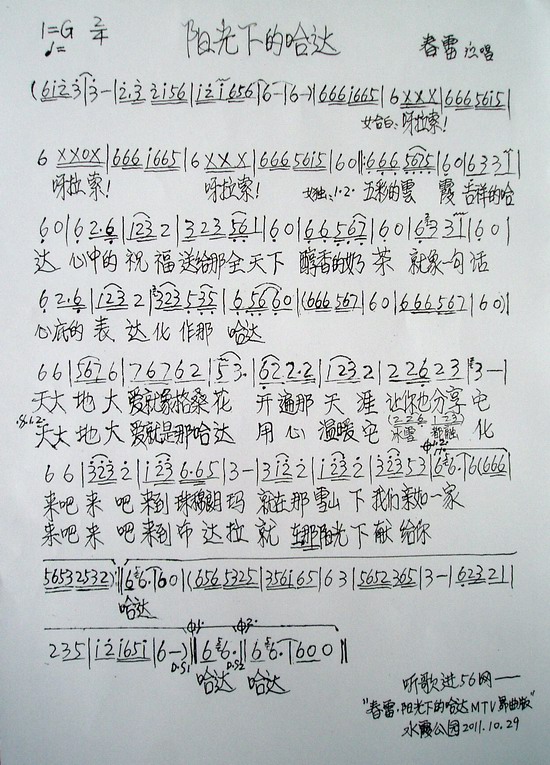 1=G 2/4 阳光下的哈达 春雷 演唱
♩=
(6 1 2 3 | 3 — | 2·3 2 1 5 6 | 1 2 1 6 5 6 | 6 — | 6 —) | 6 6 6 1 6 6 5 | 6 X X X | 6 6 6 5 6 1 5 |
女白: 呀拉索!
6 X X 0 X | 6 6 6 1 6 6 5 | 6 X X X | 6 6 6 5 6 1 5 | 6 0 || 6 6 6 5 6 7 5 | 6 0 | 6 3 3 1 |
呀拉索! 呀拉索! 女独: 1·2· 五彩的雲 霞 吉祥的哈
6 0 | 6 2·6 | 1 2 3 2 | 3 2 3 5 6 1 | 6 0 | 6 6 5 6 7 | 6 0 | 6 3 3 1 | 6 0 |
达 心中的 祝 福 送给那全天下 醇香的奶 茶 就象一句 话
6 2·6 | 1 2 3 2 | 3 2 3 5 3 5 | 6 5 6 6 0 | (6 6 6 5 6 7 | 6 0 | 6 6 6 5 6 7 | 6 0) |
心底的 表 达 化 作那 哈达
6 6 | 5 6 7 6 | 7 6 7 6 2 | 5 3· | 6 2 2·2 | 1 2 3 2 | 2 2 6 2 3 | 3 — |
天大 地 大 爱就象格桑花 开遍那 天 涯 让你也分享 它
天大 地 大 爱就是那哈达 用 心 温暖它 冰雪 都融 化
6 6 | 3 2 3 2 | 1 2 3 6·6 5 | 3 — | 3 1 2 2 | 1 2 3 2 | 3 2 3 5 3 | 6 6· | 6 (6 6 6 |
来吧 来 吧 来到 珠穆朗玛 就在那 雪山 下 我们亲如一家
来吧 来 吧 来到 布 达拉 就 在那阳光下 献 给你
5 6 5 3 2 5 3 2) :|| 6 6· | 6 0 | (6 5 6 5 3 2 5 | 3 5 6 1 6 5 | 6 3 | 5 6 5 2 3 6 5 | 3 — | 6 2 3 2 1 |
哈达
2 3 5 | 1 2 1 6 5 1 | 6 —) || 6 6· || 6 6· | 6 0 0 ||
D.S1 D.S2
哈达 哈达
听歌进56网——
"春雷·阳光下的哈达MTV舞曲版"
水霞公园2011.10.29